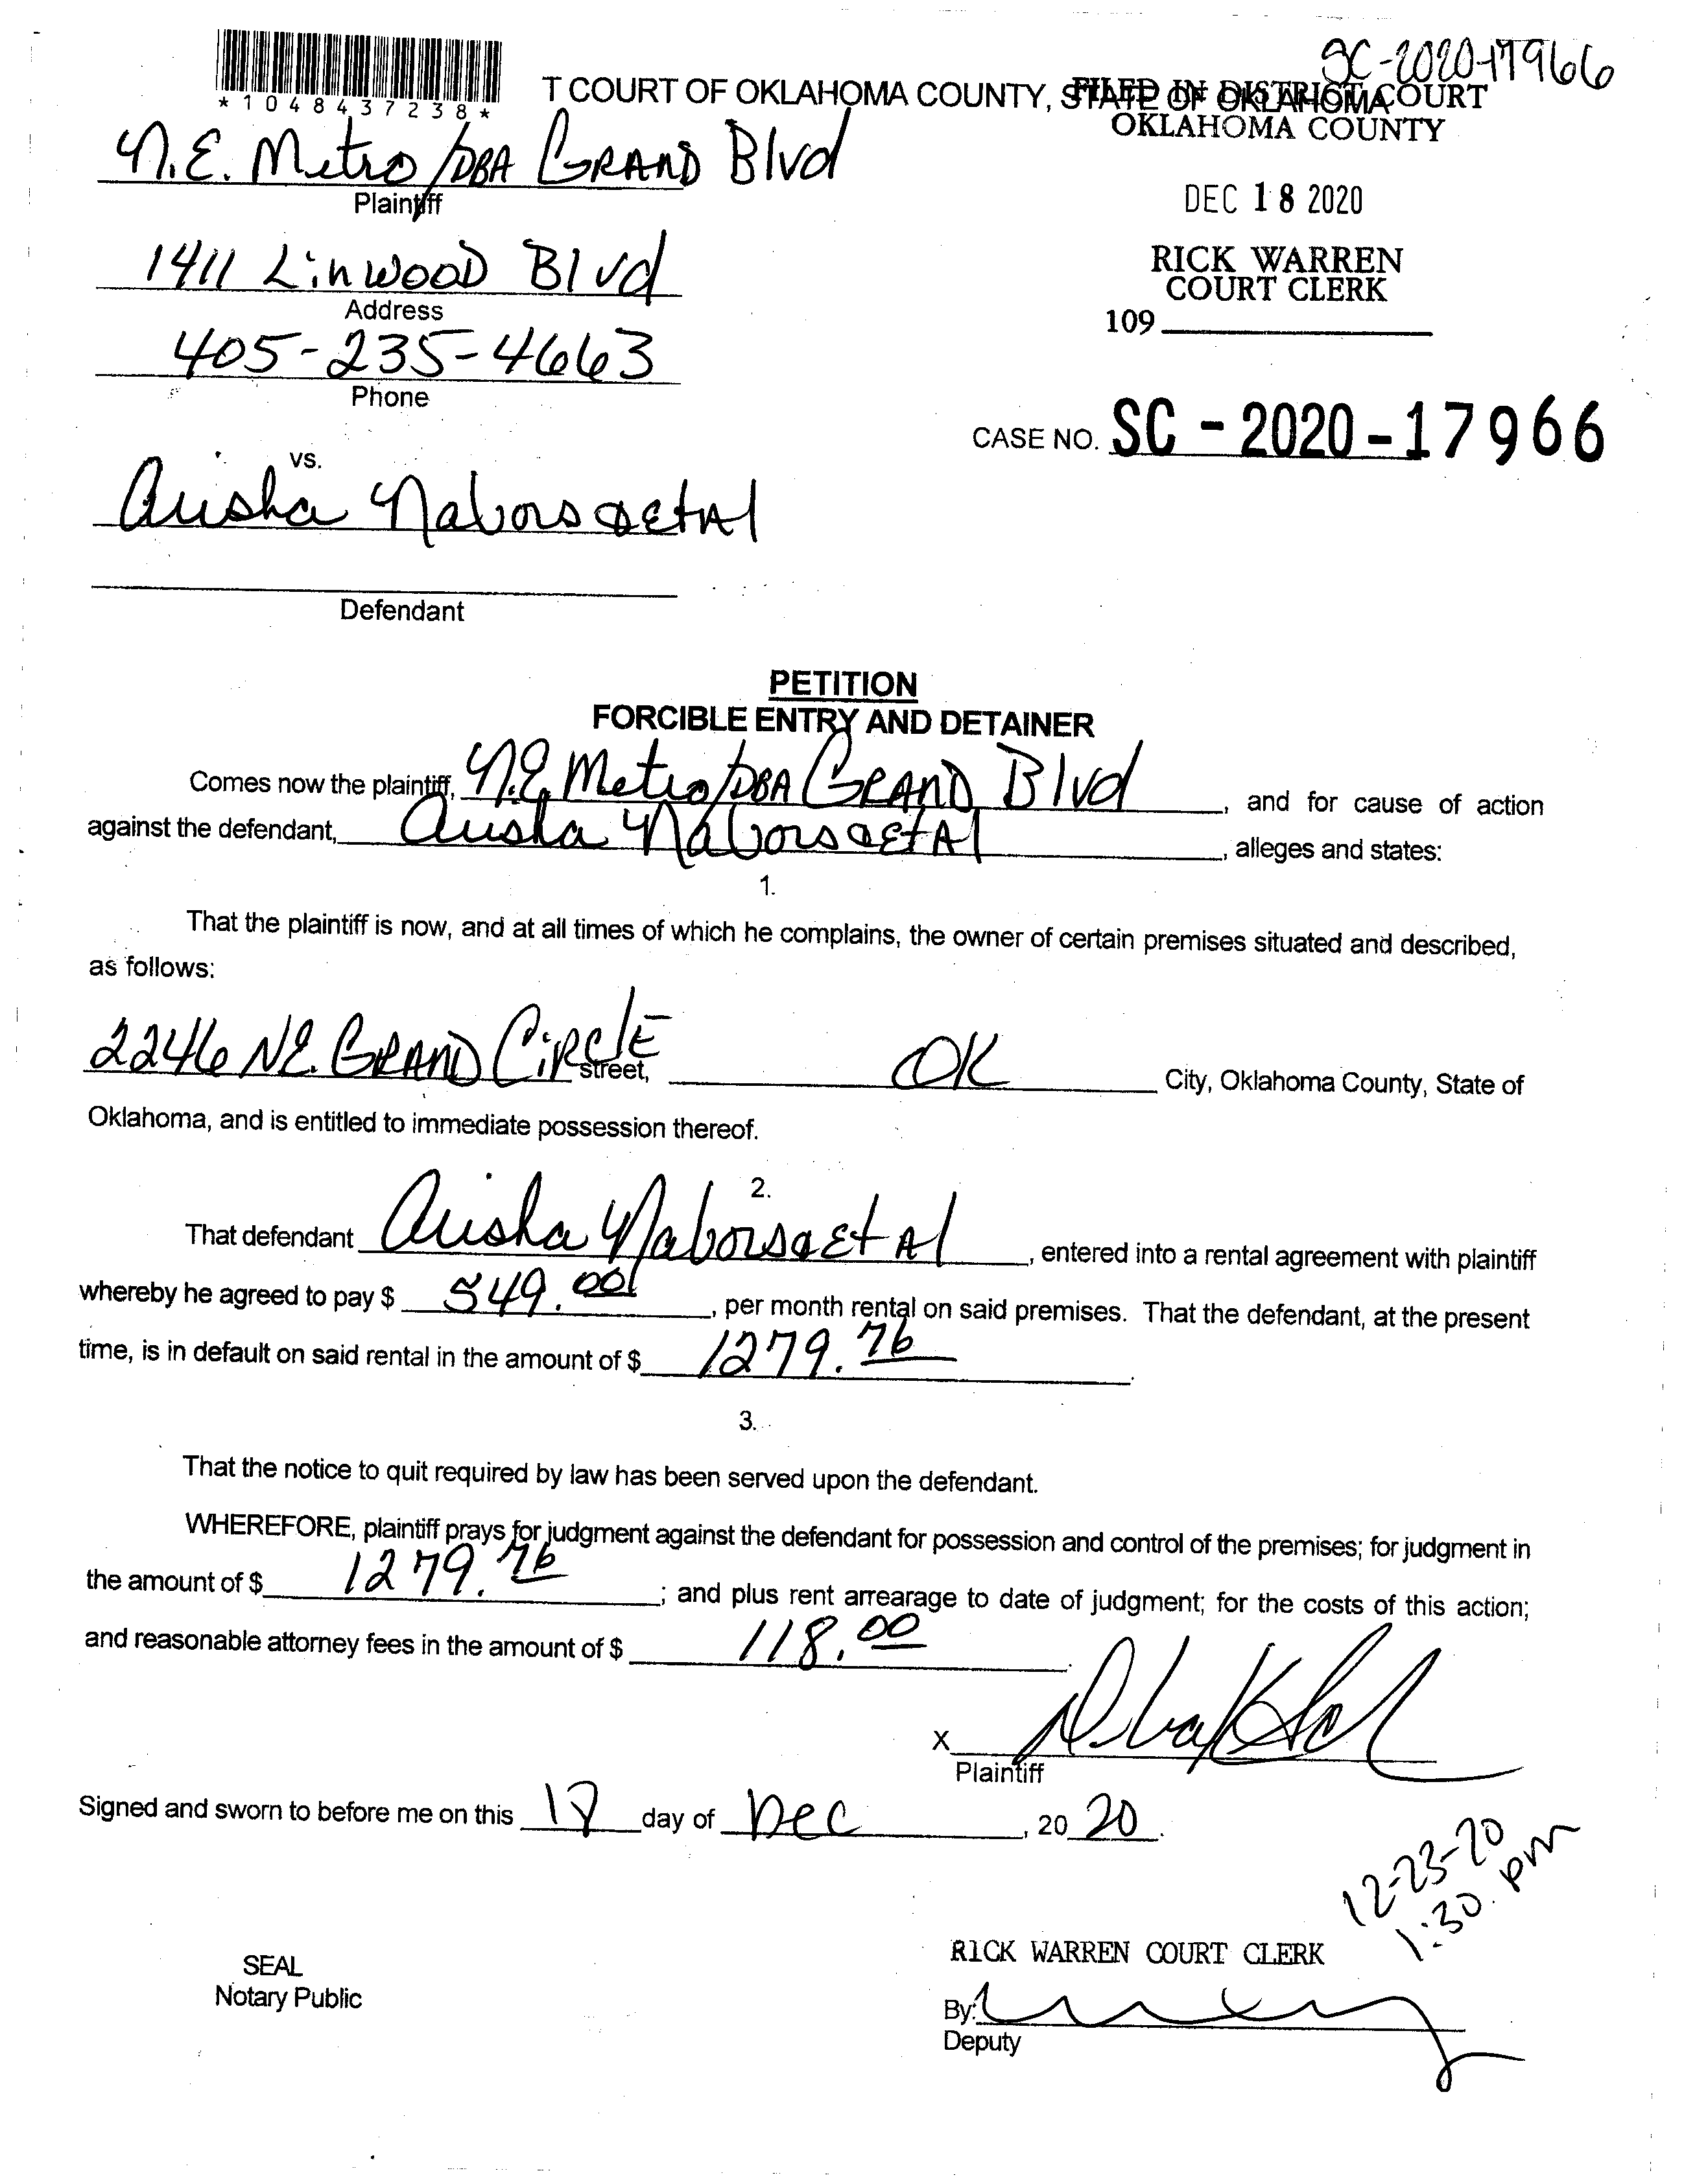 SC-2020-17966
*1048437238*
T COURT OF OKLAHOMA COUNTY, STATE OF OKLAHOMA
FILED IN DISTRICT COURT
OKLAHOMA COUNTY
N.E. Metro/DBA GRAND Blvd
Plaintiff
DEC 18 2020
1411 LinwooD Blvd
Address
RICK WARREN
COURT CLERK
109
405-235-4663
Phone
CASE NO. SC-2020-17966
vs.
Nabors etAl
Defendant
PETITION
FORCIBLE ENTRY AND DETAINER
Comes now the plaintiff, N.E. Metro/DBA GRAND Blvd, and for cause of action
against the defendant, Nabors EtAl, alleges and states:
1.
That the plaintiff is now, and at all times of which he complains, the owner of certain premises situated and described,
as follows:
2246 NE. GRAND CiRclE street, OK City, Oklahoma County, State of
Oklahoma, and is entitled to immediate possession thereof.
2.
That defendant Nabors Et Al, entered into a rental agreement with plaintiff
whereby he agreed to pay $ 549.00, per month rental on said premises. That the defendant, at the present
time, is in default on said rental in the amount of $ 1279.76.
3.
That the notice to quit required by law has been served upon the defendant.
WHEREFORE, plaintiff prays for judgment against the defendant for possession and control of the premises; for judgment in
the amount of $ 1279.76; and plus rent arrearage to date of judgment; for the costs of this action;
and reasonable attorney fees in the amount of $ 118.00.
X
Plaintiff
Signed and sworn to before me on this day of Dec, 2020.
12-23-20
1:30 pm
SEAL
Notary Public
RICK WARREN COURT CLERK
By:
Deputy